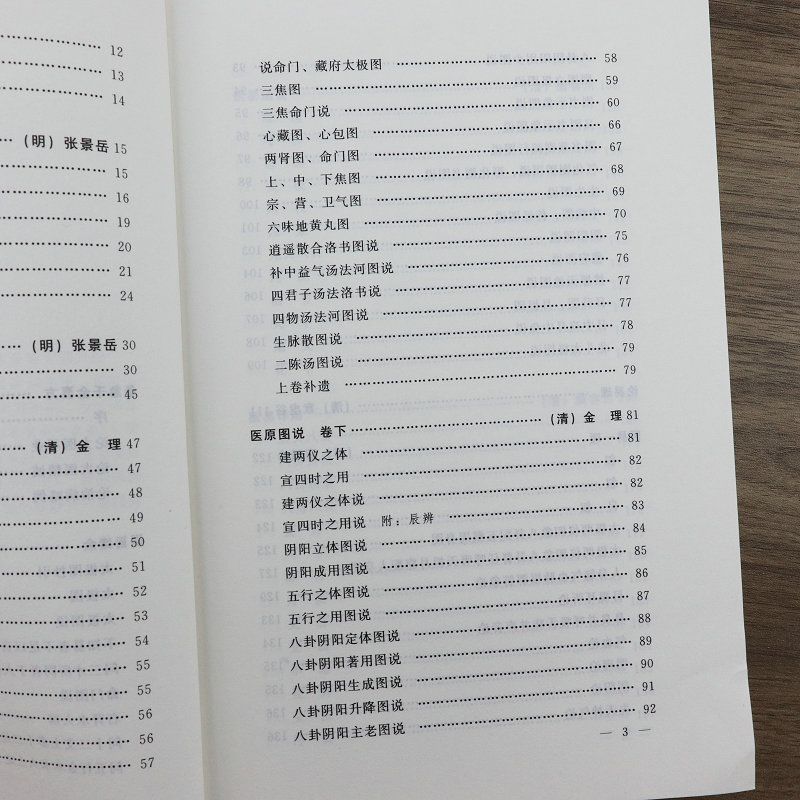 12
13
14
（明）张景岳 15
15
16
19
20
21
24
（明）张景岳 30
30
45
（清）金 理 47
47
48
49
50
51
52
53
54
55
55
56
56
57
说命门、藏府太极图 58
三焦图 59
三焦命门说 60
心藏图、心包图 66
两肾图、命门图 67
上、中、下焦图 68
宗、营、卫气图 69
六味地黄丸图 70
逍遥散合洛书图说 75
补中益气汤法河图说 76
四君子汤法洛书说 77
四物汤法河图说 77
生脉散图说 78
二陈汤图说 79
上卷补遗 79
医原图说 卷下 （清）金 理 81
建两仪之体 81
宣四时之用 82
建两仪之体说 82
宣四时之用说 附：辰辨 83
阴阳立体图说 84
阴阳成用图说 85
五行之体图说 86
五行之用图说 87
八卦阴阳定体图说 88
八卦阴阳著用图说 89
八卦阴阳生成图说 90
八卦阴阳升降图说 91
八卦阴阳主老图说 92
— 3 —